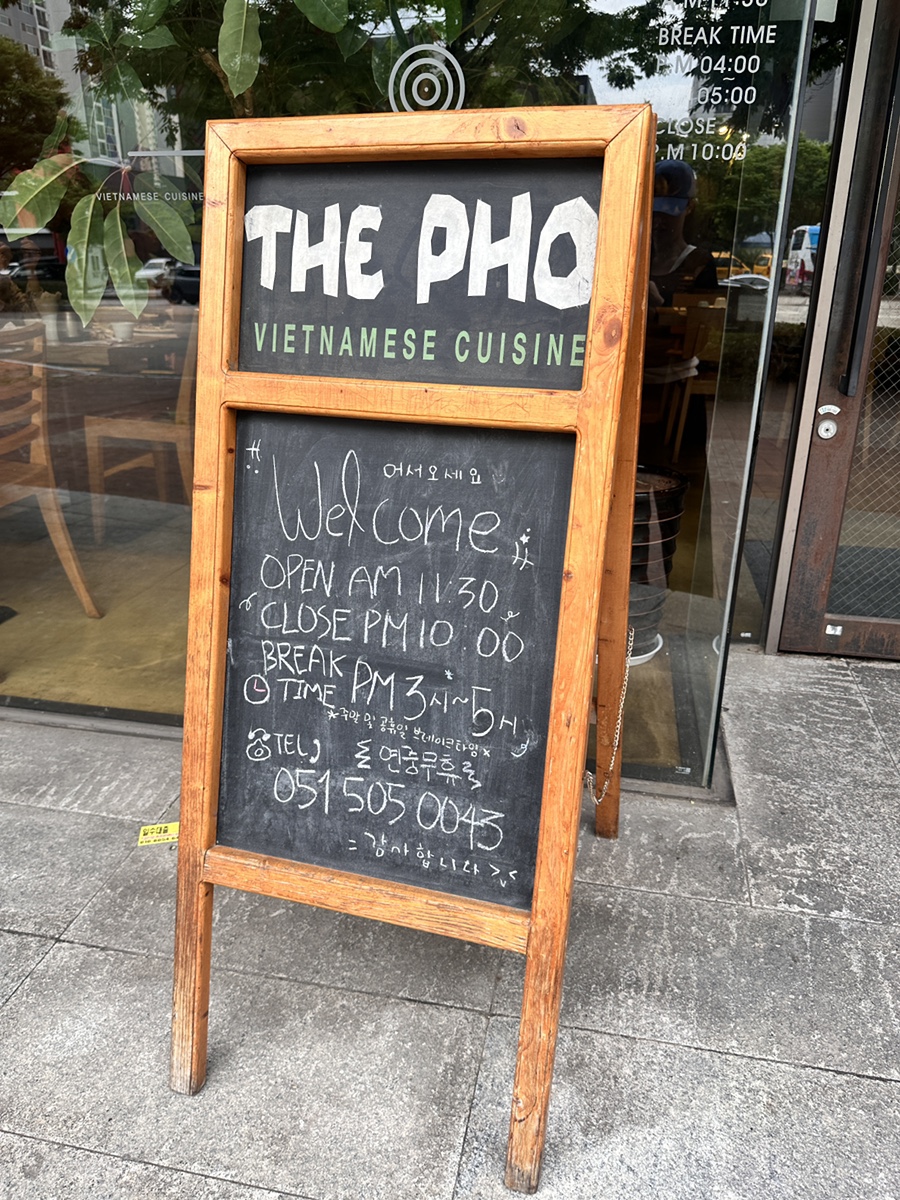 BREAK TIME
P.M 04:00
~
05:00
CLOSE
P.M 10:00
VIETNAMESE CUISINE
THE PHO
VIETNAMESE CUISINE
어서오세요
Welcome
OPEN AM 11:30
CLOSE PM 10:00
BREAK
TIME PM 3시~5시
*주말 및 공휴일 브레이크타임 x
TEL)
연중무휴
051 505 0043
= 감사합니다 >.<